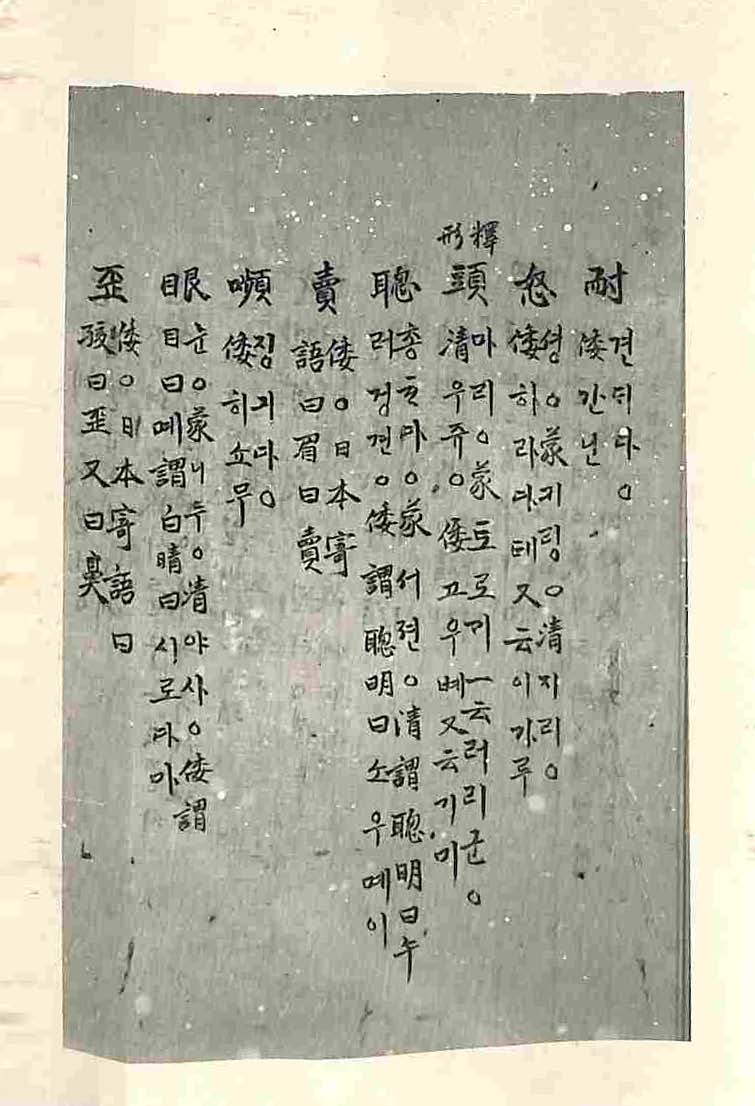 耐 견듸다。
倭 간닌
怒 셩。蒙 기팅。清 자리。
倭 하라다테 又云 이가루
釋形
頭 마리。蒙 토로기 一云 러리군。
清 우쥬。倭 고우볘 又云 기미
聰 총ᄒᆞ다。蒙 서젼。清謂聰明曰 수
러겅견。倭謂聰明曰 소우몌이
賣 倭。日本寄
語曰眉曰賣
嚬 징긔다。
倭 히소무
眼 눈。蒙 니두。清 야사。倭謂
目曰 몌 謂白睛曰 시로다마
歪 倭。日本寄語曰
孩曰歪又曰